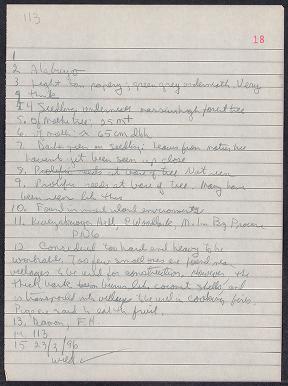 113
18
1
2 Alabuyo
3 Light tan papery; green grey underneath. Very
thick
4 Seedling underneath massive high forest tree
5. Of Mother tree; 25 mt
6. Of mother ≈ 65 cm dbh
7. Dark green on seedling; leaves from mother tree
haven't yet been seen up close
8. Prolific seeds at base of tree Not seen
9. Prolific seeds at base of tree. Many have
been seen like this
10. Found in inland environments
11. Hill, Woodlark, M. Bay Province
PNG
12. Considered too hard and heavy to be
workable. Too few small ones are found near
villages to be used for construction, However the
thick bark burns like coconut shells and
is transported into villages to be used in cooking fires.
Pigeons said to eat the fruit.
13. Damon, F H
14. 113
15 23/3/96